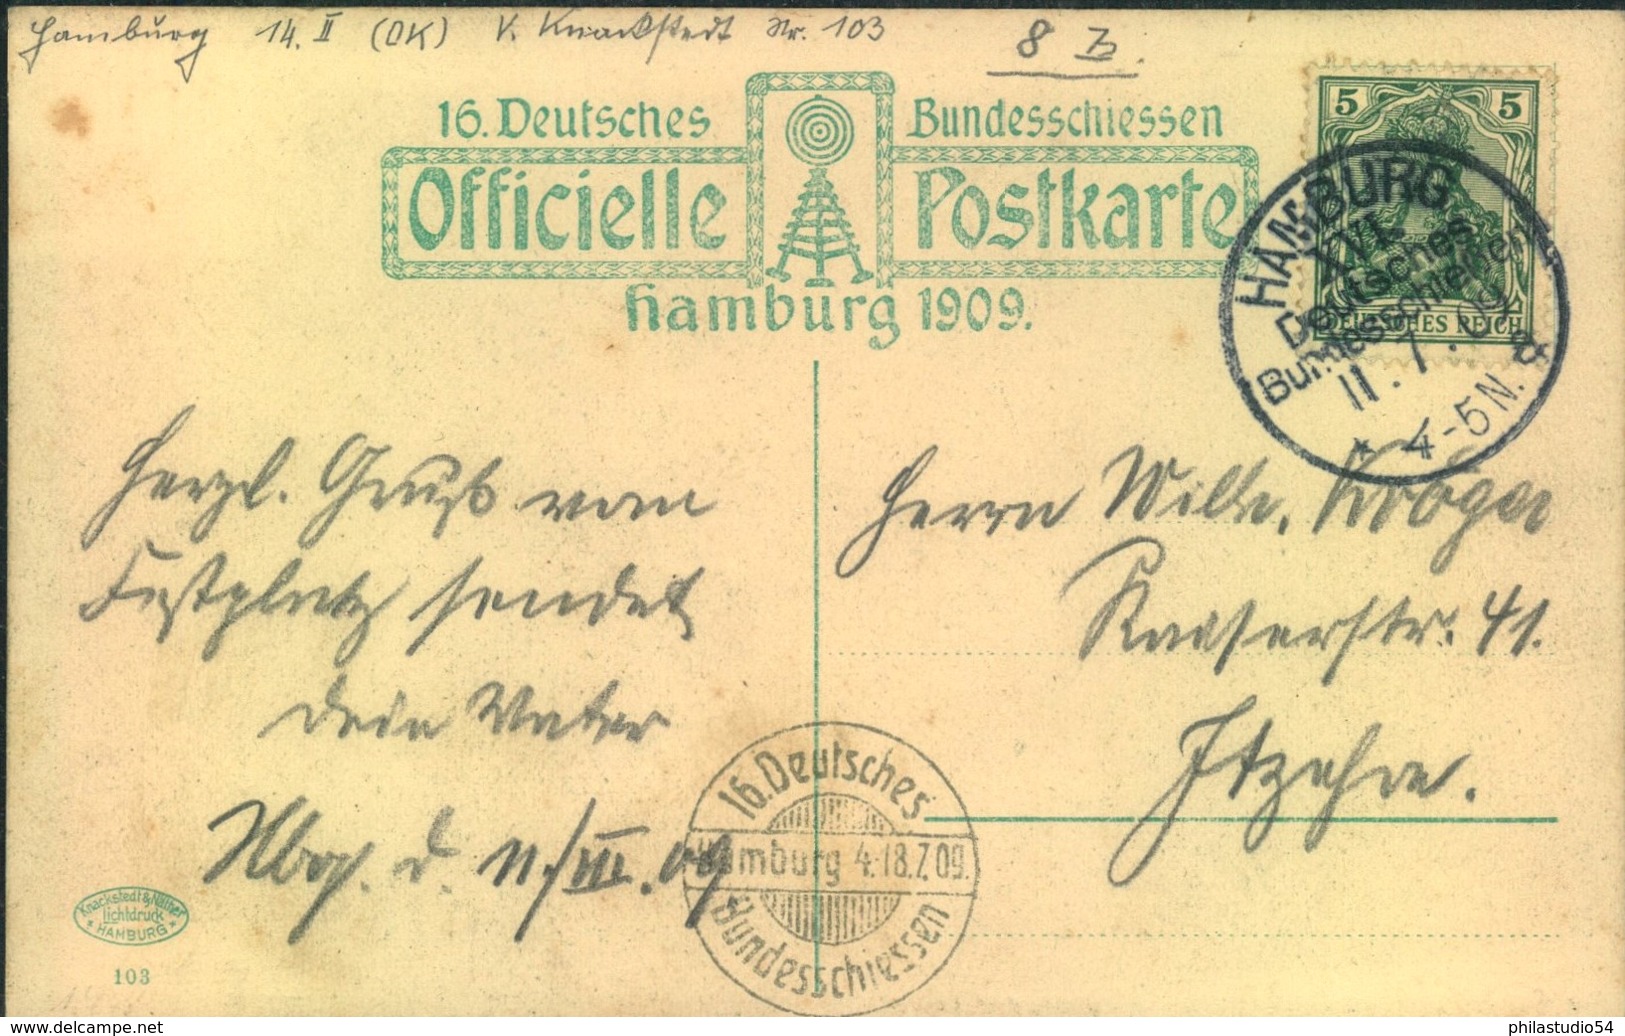 Hamburg 14. II (OK) V. Knackstedt Nr. 103
8
16. Deutsches Bundesschiessen
Officielle Postkarte
Hamburg 1909.
5 5
DEUTSCHES REICH
HAMBURG
XVI.
Deutsches
Bundesschiessen
11.7.09
* 4-5N. *
Herzl. Gruß vom
Festplatz sendet
dein Vater
Hbg. d. 11./VII. 09
Herrn Wilh. Kröger
Kaiserstr. 41.
Itzehoe.
16. Deutsches
Hamburg 4-18.7.09.
Bundesschiessen
Knackstedt & Näther
lichtdruck
* HAMBURG *
103
www.delcampe.net
philastudio54